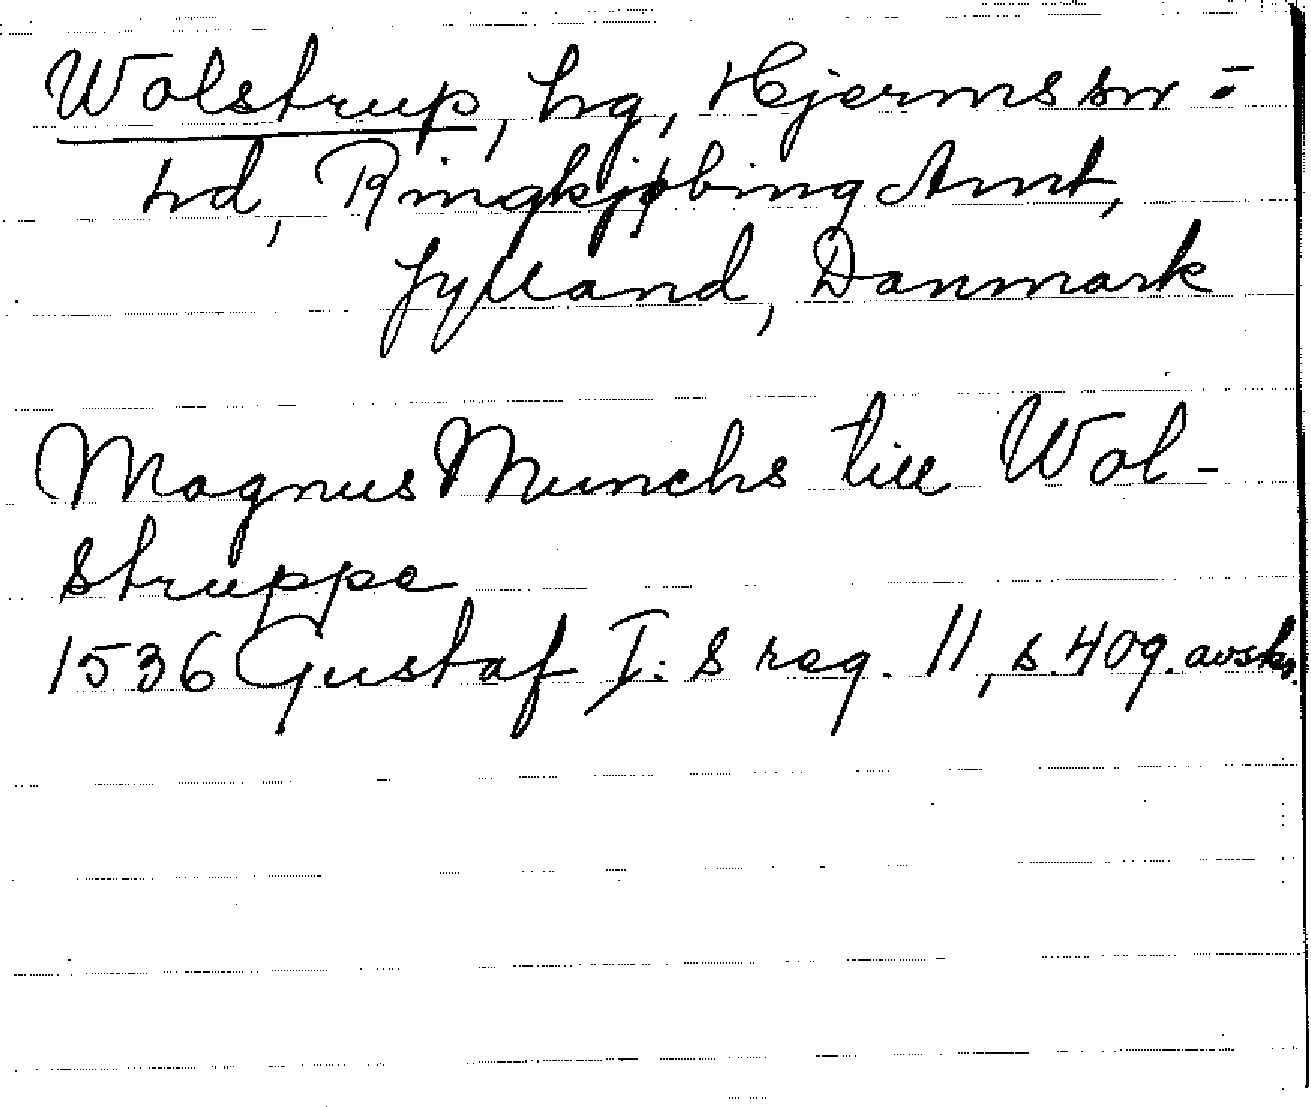 Wolstrup, hg, Hjerms sn -
hd, Ringkjøbing Amt,
Jylland, Danmark
Magnus Munchs till Wol-
struppe
1536 Gustaf I:s reg. 11, s. 409. avskr.